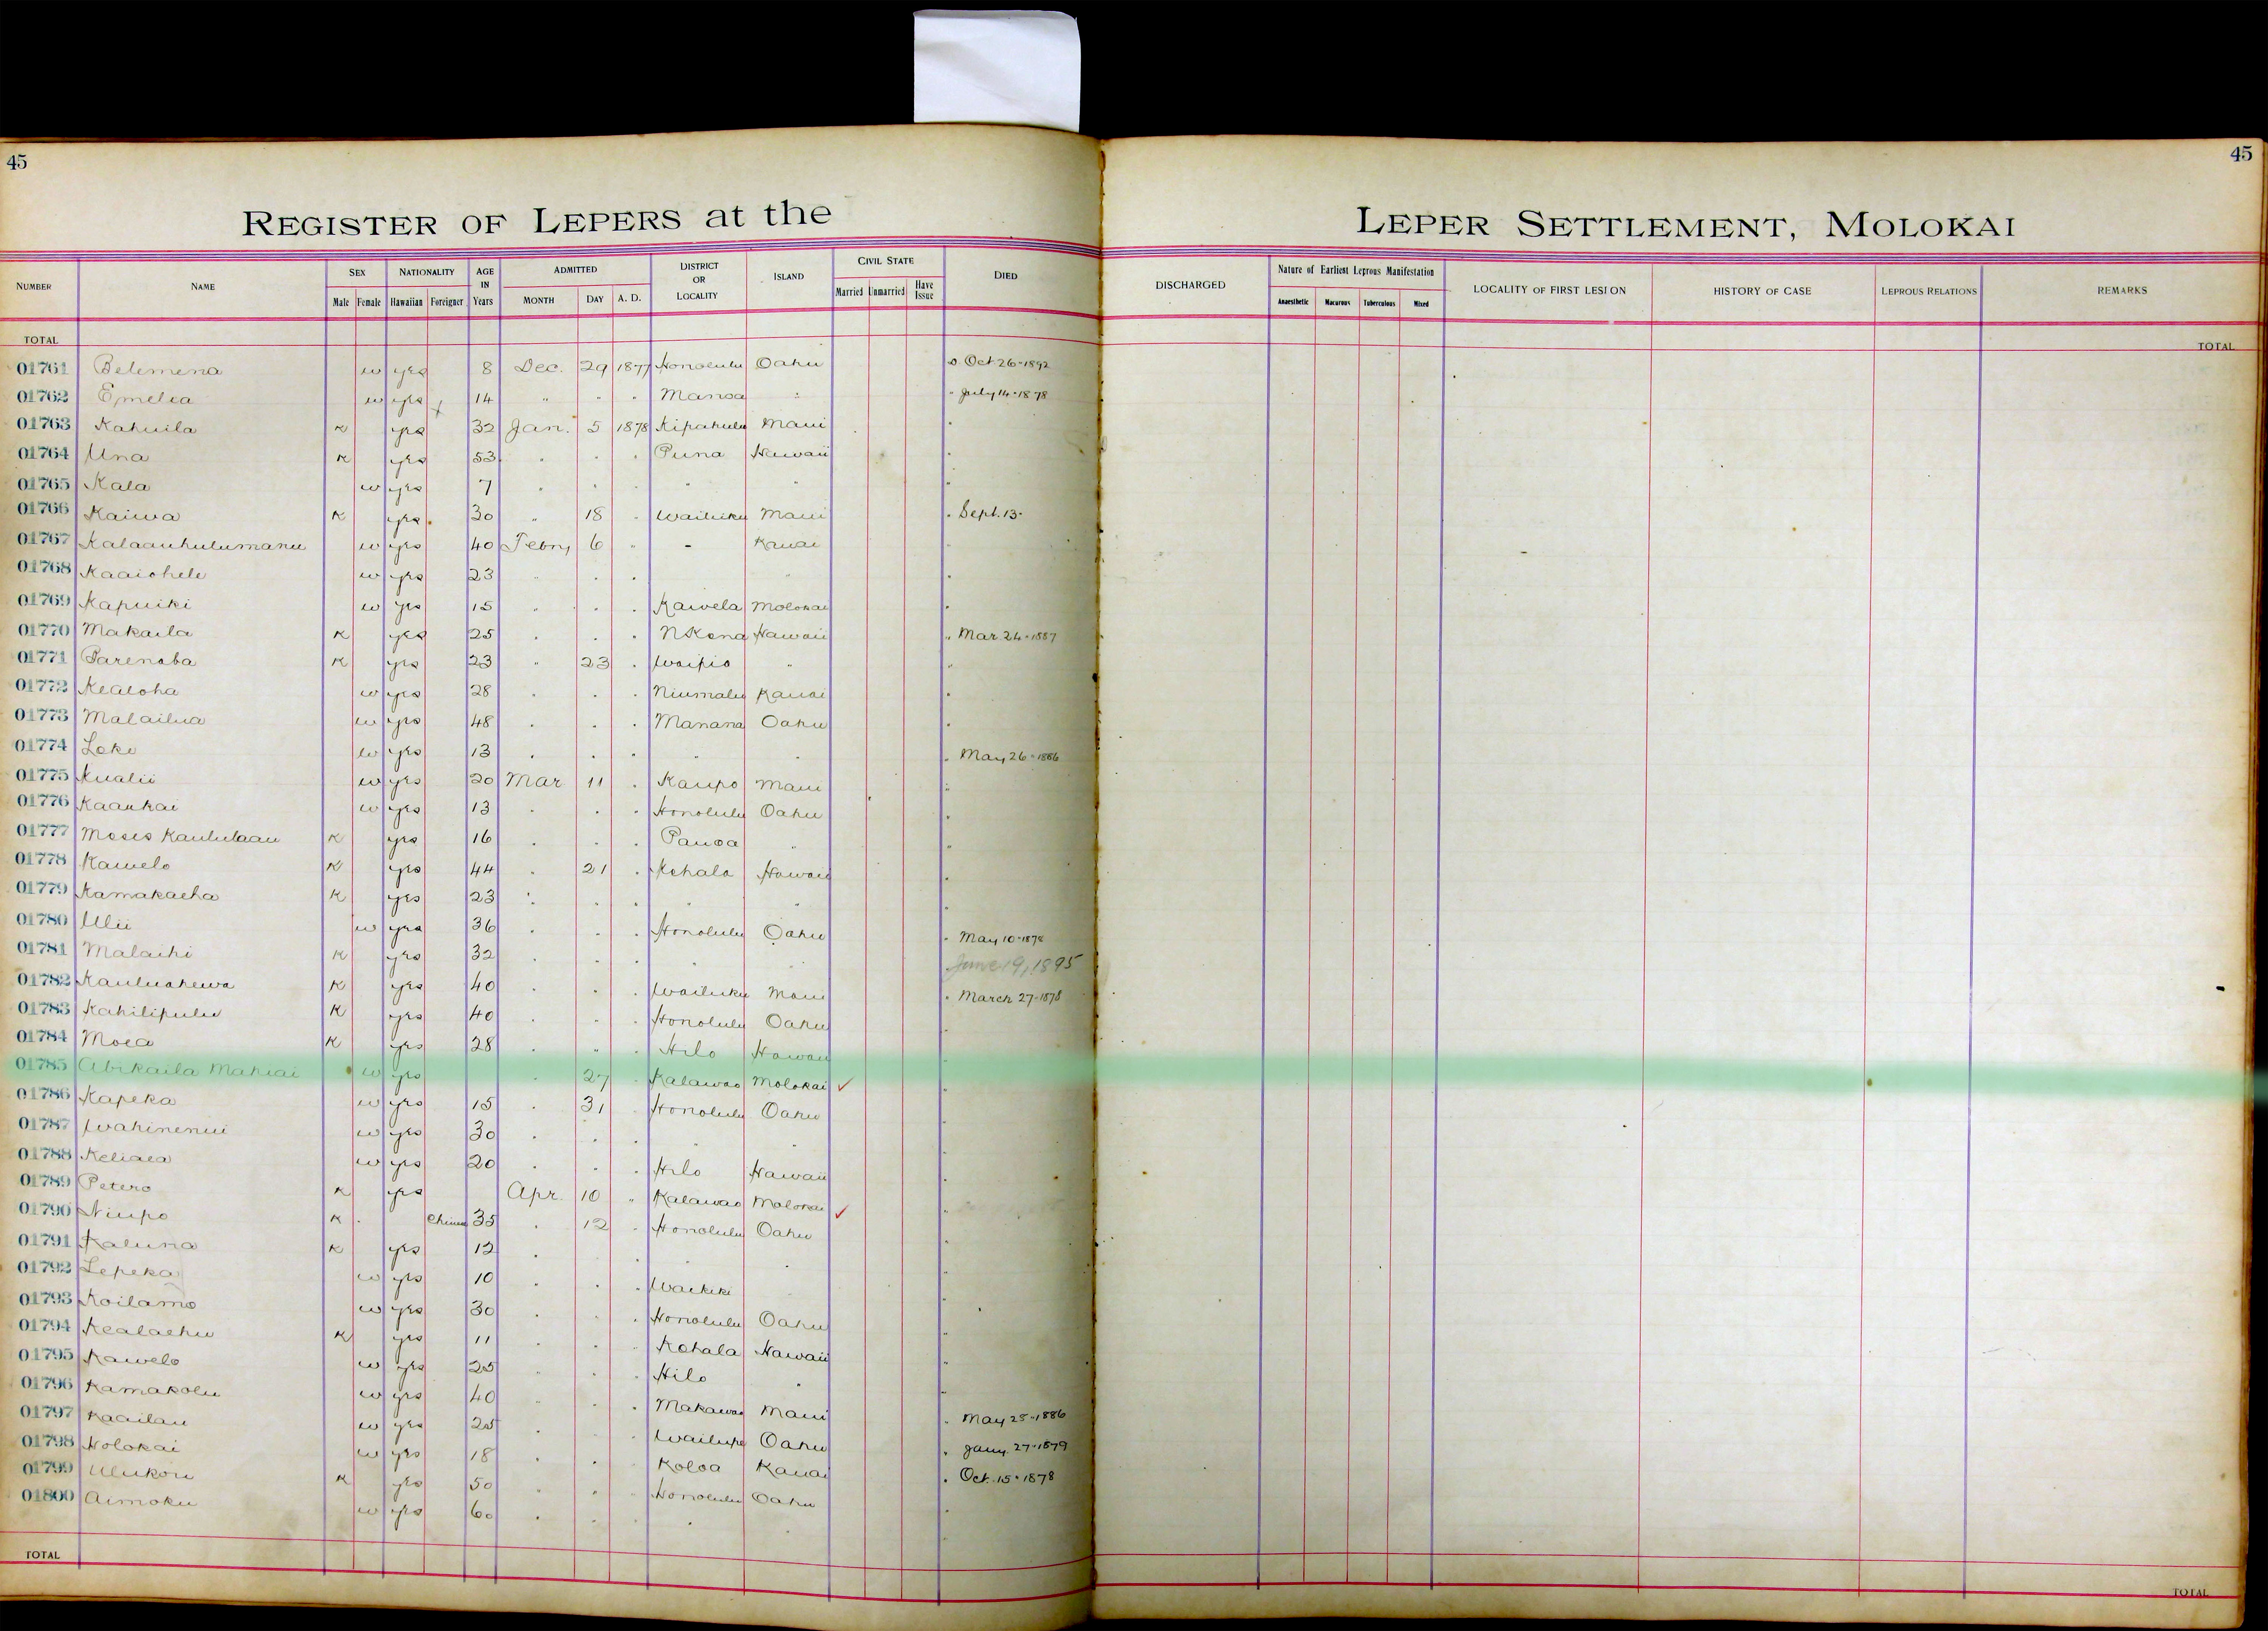 45 45
REGISTER OF LEPERS at the LEPER SETTLEMENT, MOLOKAI
NUMBER NAME SEX NATIONALITY AGE IN Years ADMITTED DISTRICT OR LOCALITY ISLAND CIVIL STATE DIED DISCHARGED Nature of Earliest Leprous Manifestation LOCALITY OF FIRST LESION HISTORY OF CASE LEPROUS RELATIONS REMARKS
Male Female Hawaiian Foreigner MONTH DAY A. D. Married Unmarried Have Issue Anaesthetic Macurous Tuberculous Mixed
TOTAL TOTAL
01761 Belemena w yes 8 Dec. 29 1877 Honolulu Oahu Oct 26-1892
01762 Emelia w yes 14 " " " Manoa " July 14-1878
01763 Kahuila K yes 32 Jan. 5 1878 Kipahulu Maui
01764 Una K yes 53 " " " Puna Hawaii
01765 Kala w yes 7 " " " " "
01766 Kaiwa K yes 30 " 18 " Wailuku Maui Sept. 13-
01767 Kalaauhulumanu w yes 40 Febry 6 " - Kauai
01768 Kaaiohele w yes 23 " " " "
01769 Kapuiki w yes 15 " " " Kawela Molokai
01770 Makaila K yes 25 " " " N Kona Hawaii Mar 24-1887
01771 Parenaba K yes 23 " 23 " Waipio "
01772 Kealoha w yes 28 " " " Niumalu Kauai
01773 Malailua w yes 48 " " " Manana Oahu
01774 Loke w yes 13 " " " " " May 26-1886
01775 Kualii w yes 20 Mar 11 " Kaupo Maui
01776 Kaaukai w yes 13 " " " Honolulu Oahu
01777 Moses Kaululaau K yes 16 " " " Pauoa "
01778 Kawelo K yes 44 " 21 " Kohala Hawaii
01779 Kamakaeha K yes 23 " " " " "
01780 Ulii w yes 36 " " " Honolulu Oahu May 10-1878
01781 Malaihi K yes 32 " " " " " June 19, 1895
01782 Kauluahewa K yes 40 " " " Wailuku Maui March 27-1878
01783 Kahilipulu K yes 40 " " " Honolulu Oahu
01784 Moea K yes 28 " " " Hilo Hawaii
01785 Abikaila Mahiai w yes " 27 " Kalawao Molokai ✓
01786 Kapeka w yes 15 " 31 " Honolulu Oahu
01787 Wahinenui w yes 30 " " " " "
01788 Keliaea w yes 20 " " " Hilo Hawaii
01789 Petero K yes Apr. 10 " Kalawao Molokai ✓
01790 Niupo K Chinese 35 " 12 " Honolulu Oahu
01791 Kaluna K yes 12 " " " " "
01792 Lepeka w yes 10 " " " Waikiki "
01793 Koilamo w yes 30 " " " Honolulu Oahu
01794 Kealaehu K yes 11 " " " Kohala Hawaii
01795 Kawelo w yes 25 " " " Hilo "
01796 Kamakolu w yes 40 " " " Makawao Maui May 25-1886
01797 Kaailau w yes 25 " " " Wailupe Oahu Jany. 27-1879
01798 Holokai w yes 18 " " " Koloa Kauai Oct. 15-1878
01799 Ulukou K yes 50 " " " Honolulu Oahu
01800 Aimoku w yes 60 " " " " "
TOTAL TOTAL